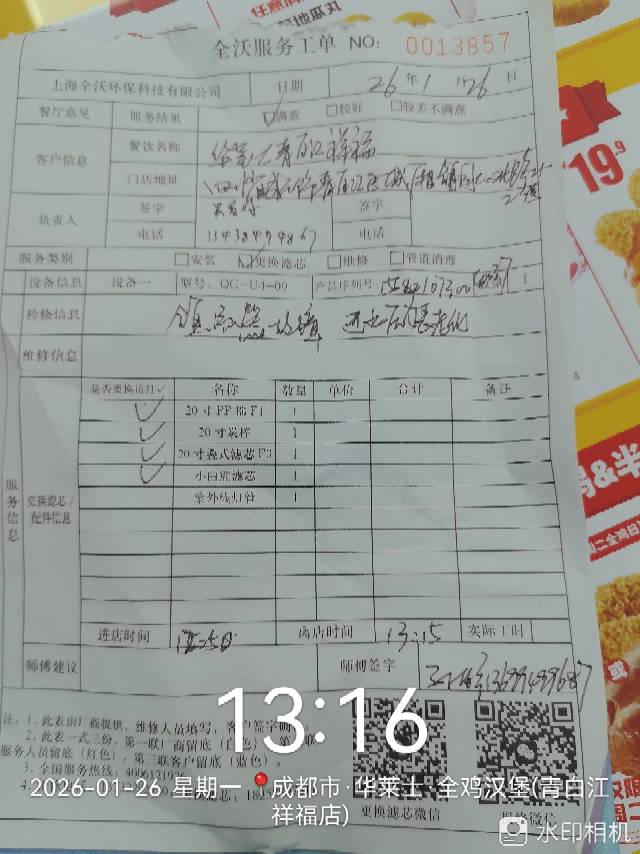 任意满
地瓜丸
全沃服务工单 NO: 0013857
上海全沃环保科技有限公司 日期 26年1月26日
餐厅意见 服务结果 ☑满意 □较好 □较差不满意
客户信息 餐饮名称 华莱士青白江祥福
门店地址
负责人 签字 签字
电话 电话
服务类别 □安装 ☑更换滤芯 □维修 □管道消毒
设备信息 设备一 型号: QG-U4-09 产品序列号:
检修信息
维修信息
服务信息
更换滤芯/配件信息
是否更换请打✓ 名称 数量 单价 合计 备注
✓ 20寸PP棉F1 1
✓ 20寸炭棒 1
✓ 20寸叠式滤芯F3 1
✓ 小白班滤芯 1
紫外线灯管 1
进店时间 12:50 离店时间 13:15 实际工时
师傅建议 师傅签字
注: 1、此表由厂商提供，维修人员填写，客户签字
2、此表一式三份，第一联厂商留底（白色）
服务人员留底（红色），第三联客户留底（蓝色）。
3、全国服务热线:
更换滤芯微信 报修微信
19.9
&半
或
13:16
2026-01-26 星期一 成都市·华莱士·全鸡汉堡(青白江
祥福店)
水印相机